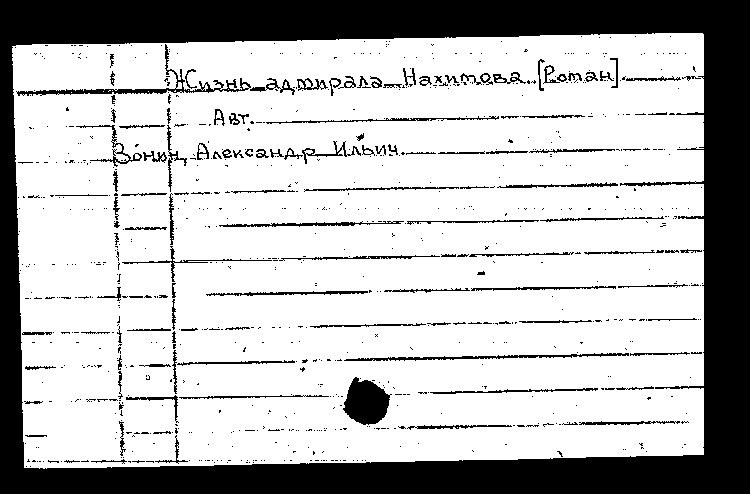 Жизнь адмирала Нахимова. [Роман].
Авт.
Зонин, Александр Ильич.